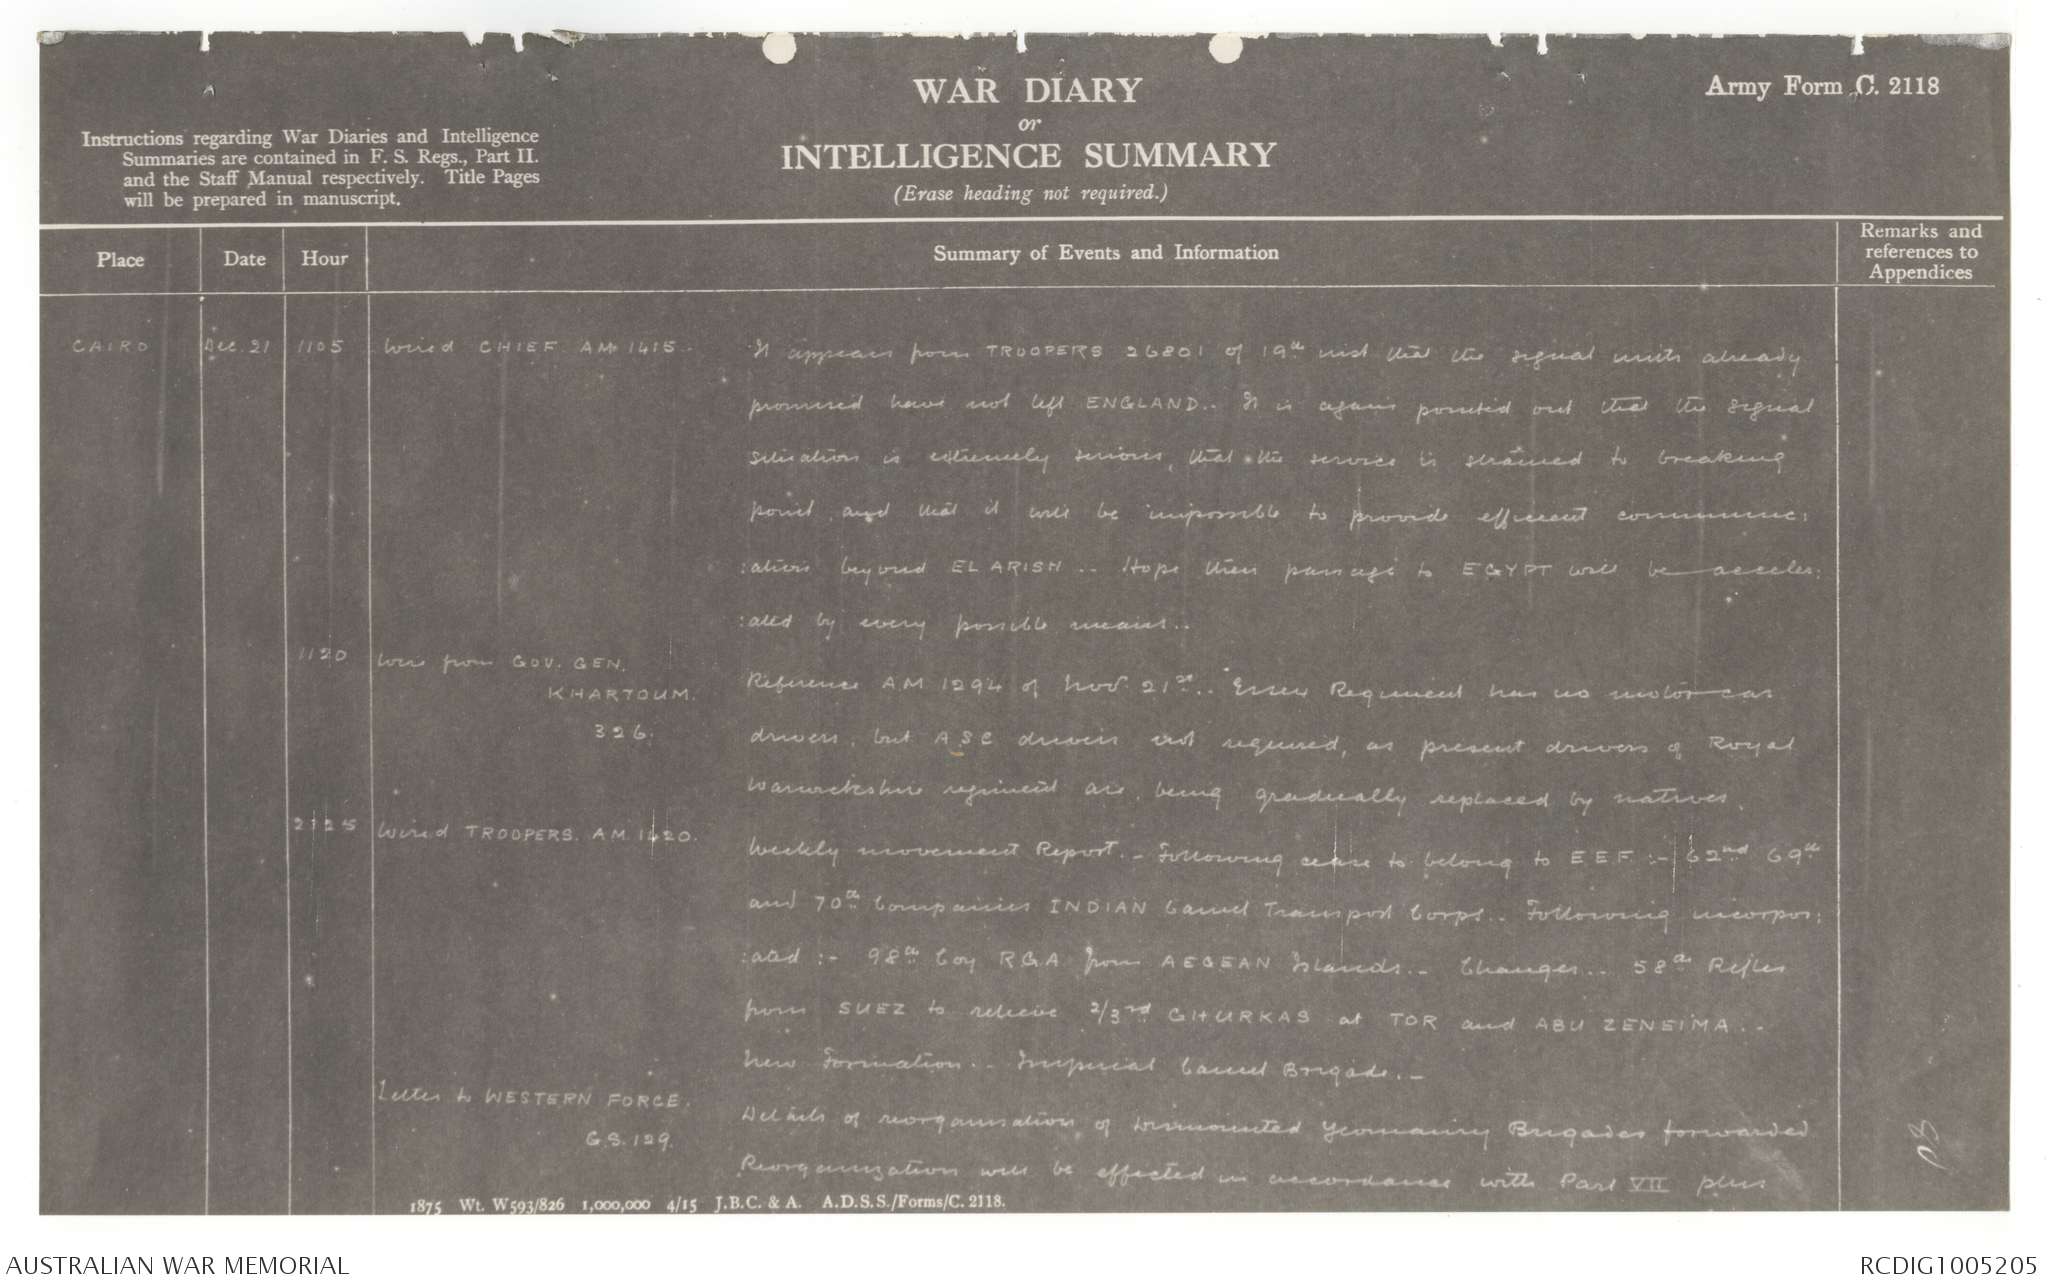 WAR DIARY
or
INTELLIGENCE SUMMARY
(Erase heading not required.)
Army Form C. 2118
Instructions regarding War Diaries and Intelligence
Summaries are contained in F. S. Regs., Part II.
and the Staff Manual respectively. Title Pages
will be prepared in manuscript.
Place Date Hour Summary of Events and Information Remarks and references to Appendices
CAIRO Dec. 21 1105 Wired CHIEF AM 1415. It appears from TROOPERS 26801 of 19th inst that the signal units already
promised have not left ENGLAND.. It is again pointed out that the signal
situation is extremely serious, that the service is strained to breaking
point and that it will be impossible to provide efficient communic:
:ations beyond EL ARISH .. Hope their passage to EGYPT will be acceler:
:ated by every possible means..
1120 Wire from GOV. GEN.
KHARTOUM.
326.
Reference AM 1294 of Nov. 21st.. Essex Regiment has no motor car
drivers, but ASC drivers not required, as present drivers of Royal
Warwickshire regiment are being gradually replaced by natives.
2125 Wired TROOPERS. AM 1420.
Weekly movement Report. - Following cease to belong to EEF :- 62nd 69th
and 70th Companies INDIAN Camel Transport Corps.. Following incorpor:
:ated :- 98th Coy RGA from AEGEAN Islands.- Changes.. 58th Rifles
from SUEZ to relieve 2/3rd GHURKAS at TOR and ABU ZENEIMA..
New Formation.. Imperial Camel Brigade.-
Letter to WESTERN FORCE.
G.S. 129.
Details of reorganisation of Dismounted Yeomanry Brigades forwarded
Reorganization will be effected in accordance with Part VII plus
1875 Wt. W593/826 1,000,000 4/15 J.B.C. & A. A.D.S.S./Forms/C. 2118.
AUSTRALIAN WAR MEMORIAL
RCDIG1005205